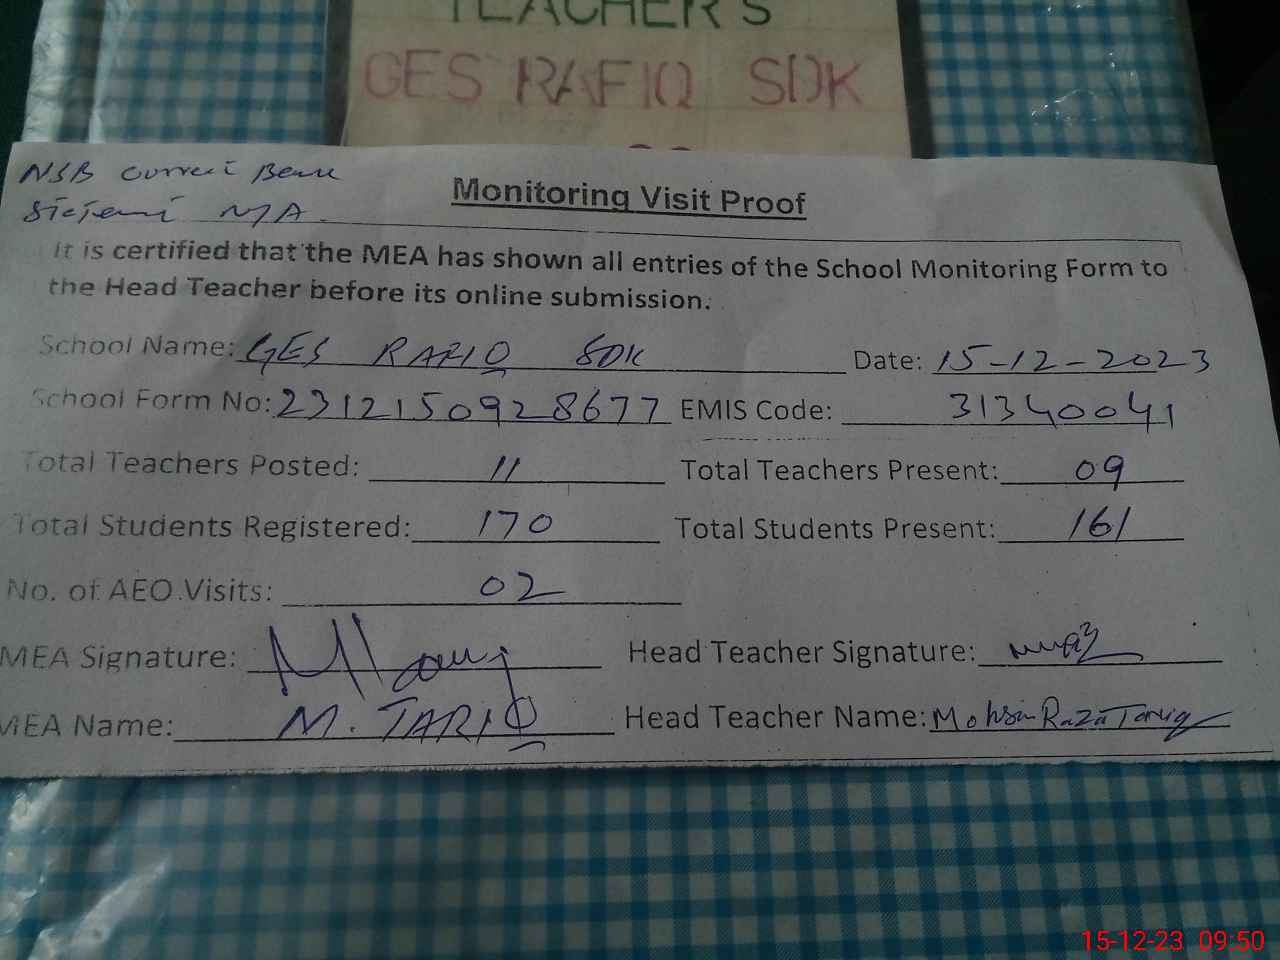 TEACHER'S
GES RAFIQ SDK
NSB
N/A
Monitoring Visit Proof
It is certified that the MEA has shown all entries of the School Monitoring Form to
the Head Teacher before its online submission.
School Name: GES RAFIQ SDK Date: 15-12-2023
School Form No: 2312150928677 EMIS Code: 31340041
Total Teachers Posted: 11 Total Teachers Present: 09
Total Students Registered: 170 Total Students Present: 161
No. of AEO Visits: 02
MEA Signature: Head Teacher Signature:
MEA Name: M. TARIQ Head Teacher Name: Mohsin Raza Tariq
15-12-23 09:50